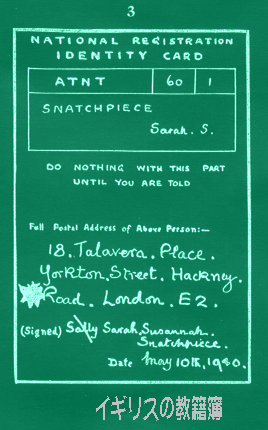 3
NATIONAL REGISTRATION
IDENTITY CARD
ATNT 60 1
SNATCHPIECE
Sarah. S.
DO NOTHING WITH THIS PART
UNTIL YOU ARE TOLD
Full Postal Address of Above Person:—
18. Talavera. Place.
Yorkton. Street. Hackney.
Road. London. E2.
(Signed) Sally Sarah. Susannah.
Snatchpiece.
Date May 10th, 1940.
イギリスの教籍簿